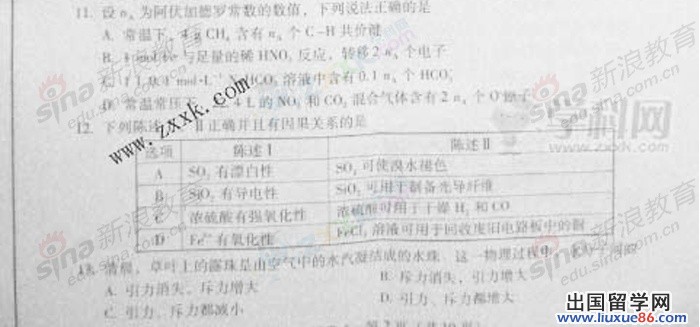 11. 设 nA 为阿伏加德罗常数的数值，下列说法正确的是
A. 常温下，4 g CH₄ 含有 nA 个 C-H 共价键
B. 1 mol 与足量的稀 HNO₃ 反应，转移 2 nA 个电子
C. 1 L 0.1 mol·L⁻¹ NaHCO₃ 溶液中含有 0.1 nA 个 HCO₃⁻
D. 常温常压下 4 L 的 NO₂ 和 CO₂ 混合气体含有 2 nA 个 O 原子
12. 下列陈述 Ⅱ 正确并且有因果关系的是
选项 陈述Ⅰ 陈述Ⅱ
A SO₂ 有漂白性 SO₂ 可使溴水褪色
B SiO₂ 有导电性 SiO₂ 可用于制备光导纤维
C 浓硫酸有强氧化性 浓硫酸可用于干燥 H₂ 和 CO
D Fe³⁺ 有氧化性 FeCl₃ 溶液可用于回收废旧电路板中的铜
13. 清晨，草叶上的露珠是由空气中的水汽凝结成的水珠，这一物理过程中，水分子间的
A. 引力消失，斥力增大 B. 斥力消失，引力增大
C. 引力、斥力都减小 D. 引力、斥力都增大
第 2 页（共 10 页）
www.zxxk.com
sina 新浪教育
edu.sina.com.cn
学科网
zxxk.com
出国留学网
www.liuxue86.com